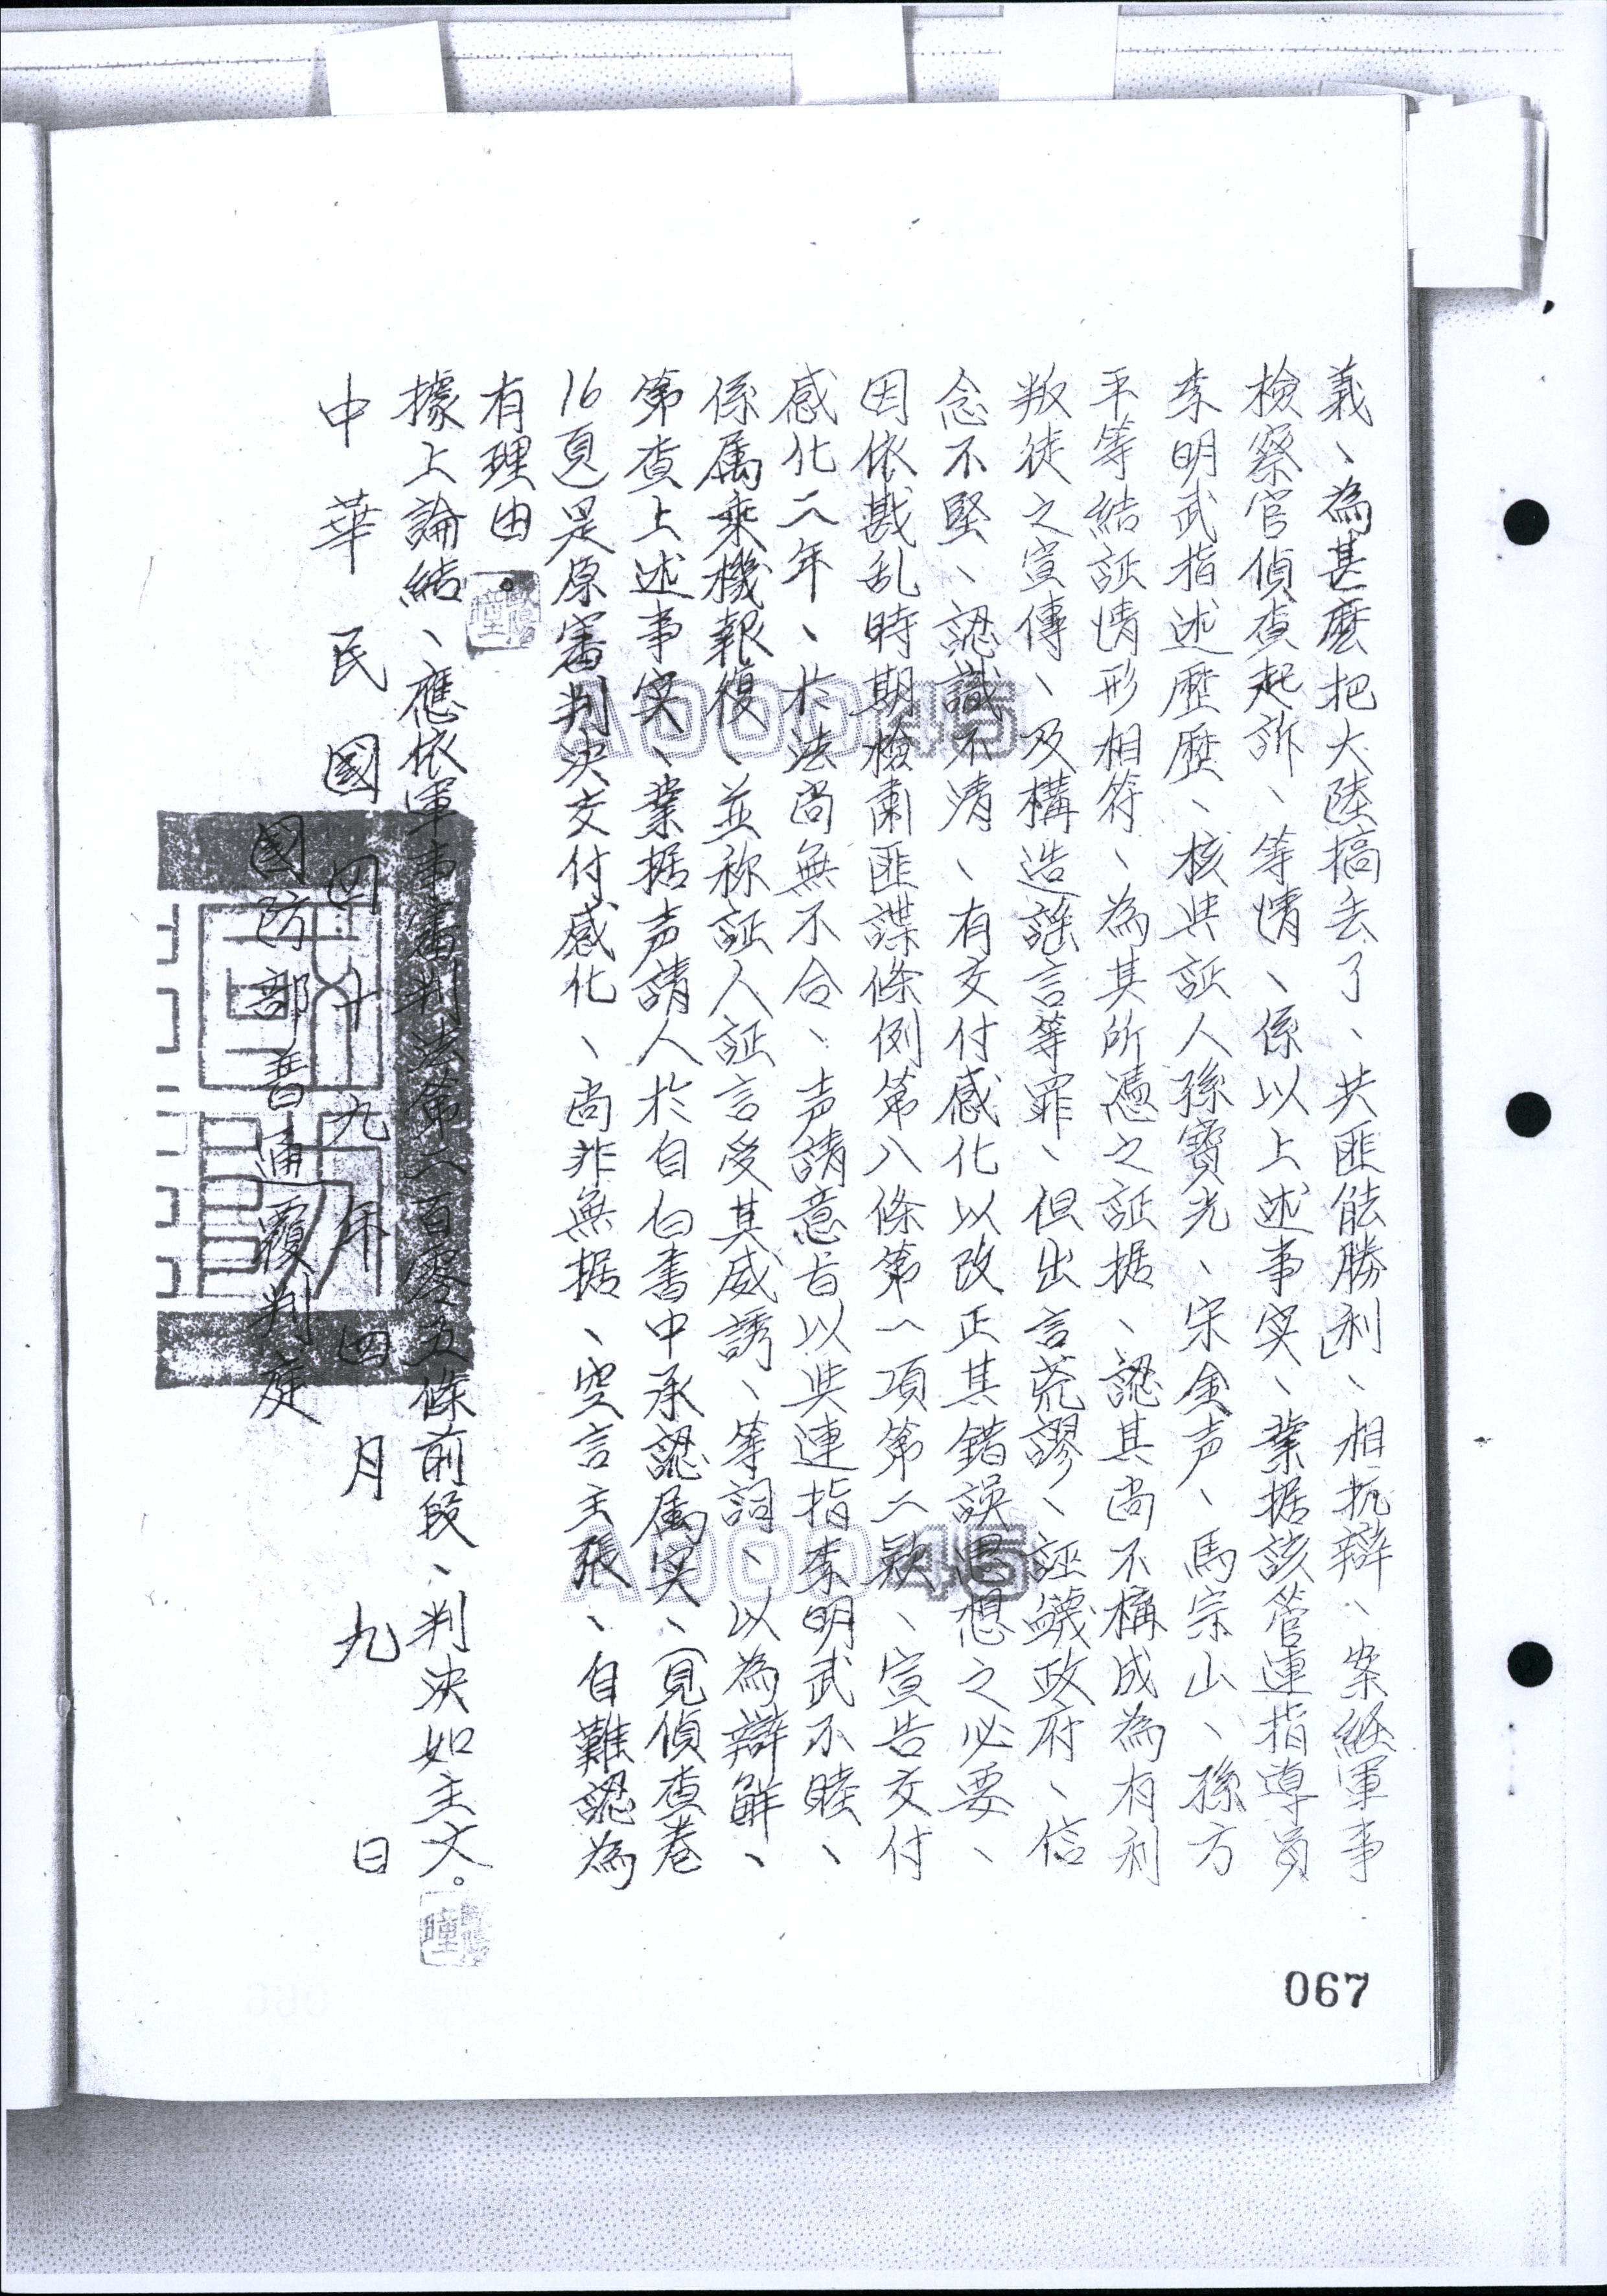 義、為甚麼把大陸搞丟了、共匪能勝利」、相抗辯、案經軍事
檢察官偵查起訴、等情、係以上述事实、業据該管連指導員
李明武指述歷歷、核與証人孫寶光、宋金声、馬宗山、孫方
平等結証情形相符、為其所憑之証据、認其尚不構成為有利
叛徒之宣傳、及構造謠言等罪、但出言荒謬、誣衊政府、信
念不堅、認識不清、有交付感化以改正其錯誤思想之必要、
因依戡乱時期檢肅匪諜條例第八條第一項第二款、宣告交付
感化二年、於法尚無不合、声請意旨以與連指李明武不睦、
係属乘機報復、並称証人証言受其威誘、等詞、以為辯解、
第查上述事实、業据声請人於自白書中承認属实、(見偵查卷
16頁)是原審判決交付感化、尚非無据、空言主張、自難認為
有理由。
據上論結、應依軍事審判法第二百零五條前段、判決如主文。
中華民國四十九年四月九日
國防部普通覆判庭
A00045
A00045
067